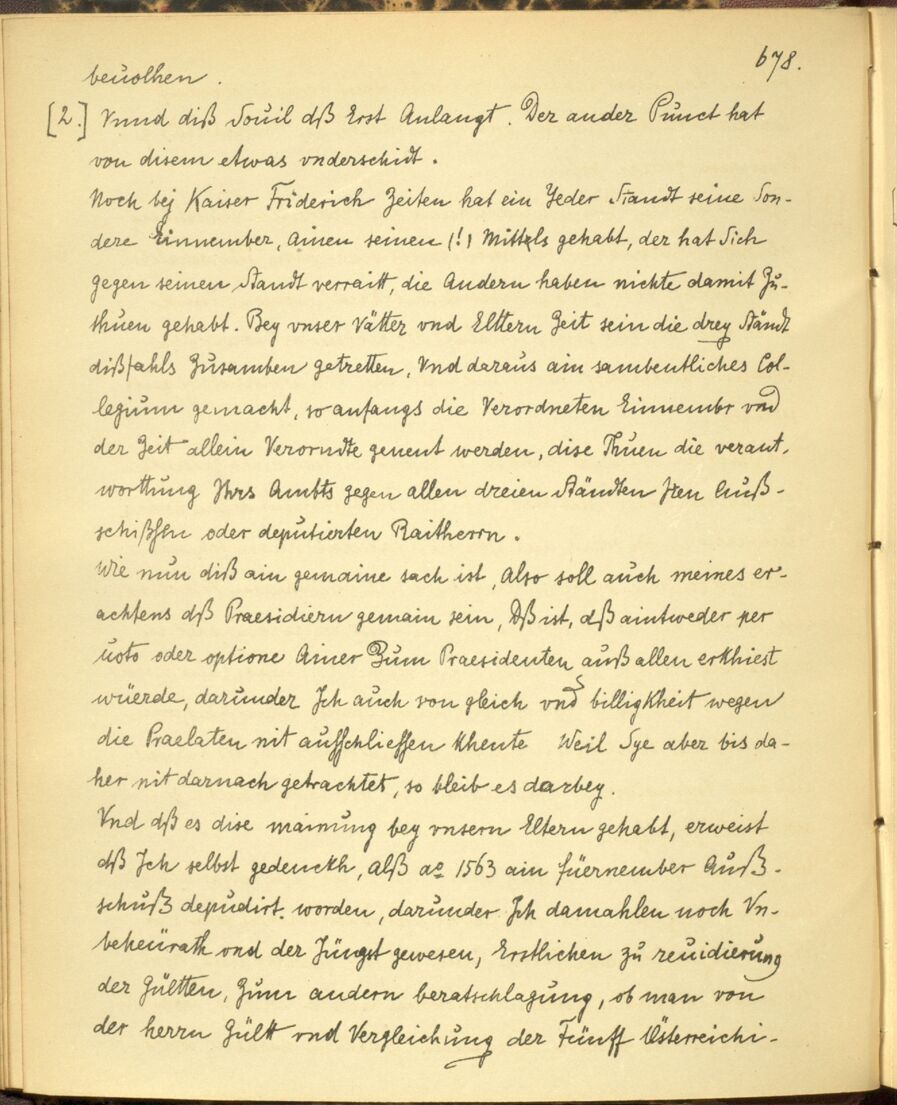 678.
beuolhen.
[2.] Vnnd diß Souil dß Erst Anlangt. Der ander Punct hat
von disem etwas vnderschidt.
Noch bej Kaiser Friderich Zeiten hat ein Yeder Standt seine Son-
dere Einnember, Ainen seinen (!) Mittls gehabt, der hat Sich
gegen seinen Standt verraitt, die Andern haben nichte damit Zu-
thuen gehabt. Bey vnser Vätter vnd Elltern Zeit sein die drey Ständt
dißfahls Zusamben getretten, Vnd daraus ain sambentliches Col-
legium gemacht, so anfangs die Verordneten Einnembr vnd
der Zeit allein Verorndte genent werden, dise Thuen die verant-
worttung Ihrs Ambts gegen allen dreien Ständten Iren Auß-
schißsen oder deputierten Raitherrn.
Wie nun diß ain gemaine sach ist, Also soll auch meines er-
achtens dß Praesidiern gemain sein, Dß ist, dß aintweder per
uoto oder optione Ainer Zum Praesidenten auß allen erkhiest
würde, darunder Ich auch von gleich vnd billigKheit wegen
die Praelaten nit aufschliessen khente Weil Sye aber bis da-
her nit darnach getrachtet, so bleib es darbey.
Vnd dß es dise mainung bey vnsern Eltern gehabt, erweist
dß Ich selbst gedenckh, Alß ao 1563 ain füernember Auß-
schuß depudirt worden, darunder Ich damahlen noch Vn-
beheürath vnd der Jüngst gewesen, Erstlichen zu reuidierung
der Gültten, Zum andern beratschlagung, ob man von
der herrn Gült vnd Vergleichung der Fünff Österreichi-